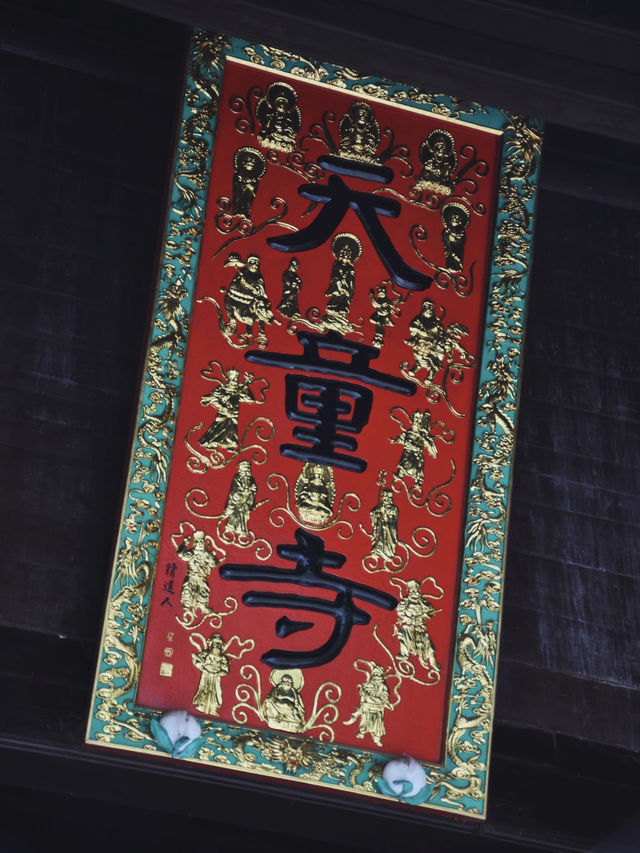 天童寺
道人